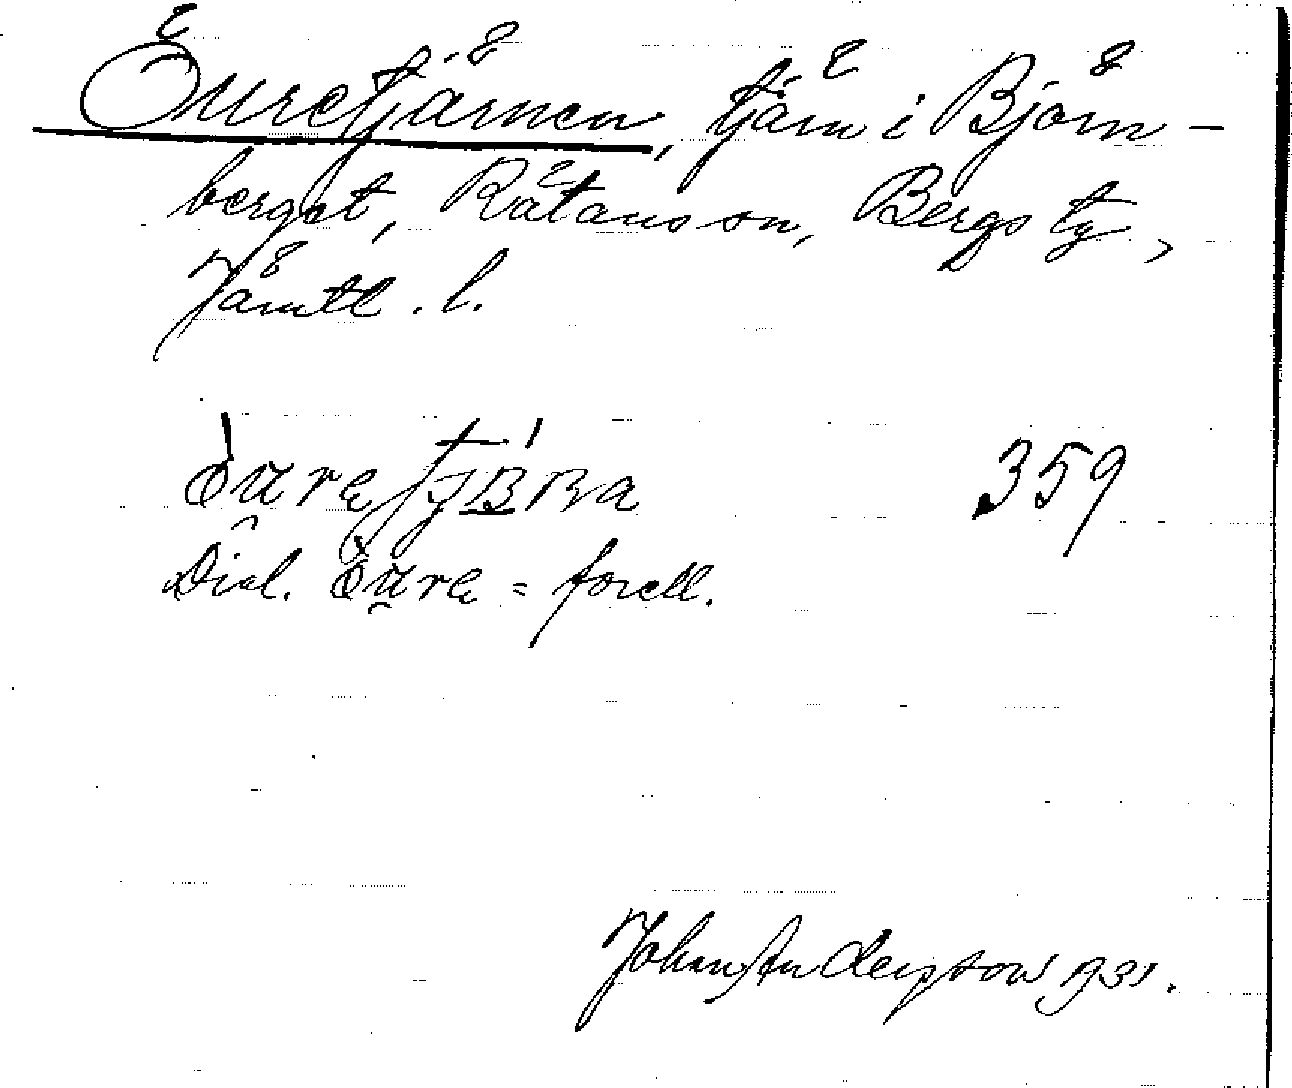 Öuretjärnen, tjärn i Björn-
berget, Rätans sn, Bergs tg,
Jämtl. l.
359
Dial. = forell.
Johan Andersson 1931.